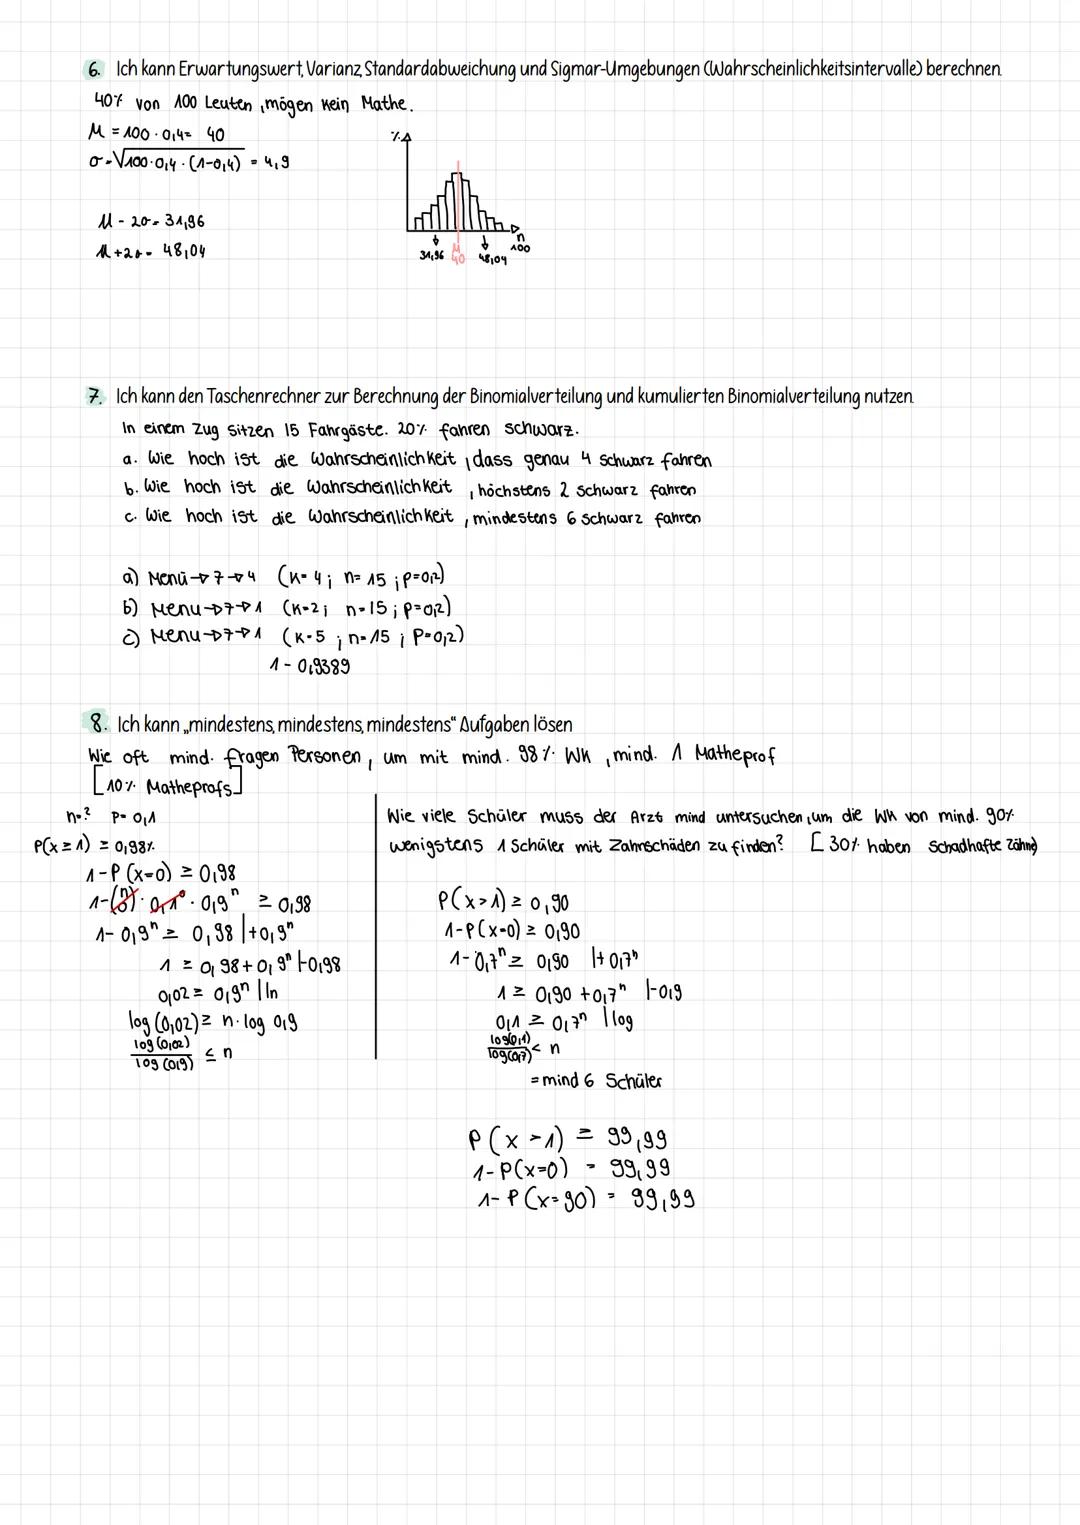 6. Ich kann Erwartungswert, Varianz, Standardabweichung und Sigmar-Umgebungen (Wahrscheinlichkeitsintervalle) berechnen.
40% von 100 Leuten, mögen kein Mathe.
M = 100 · 0,4 = 40
σ = √100·0,4·(1-0,4) = 4,9
M - 2σ = 31,96
M + 2σ = 48,04
%
n
100
31,96
M
40
48,04
7. Ich kann den Taschenrechner zur Berechnung der Binomialverteilung und kumulierten Binomialverteilung nutzen.
In einem Zug sitzen 15 Fahrgäste. 20% fahren schwarz.
a. Wie hoch ist die Wahrscheinlichkeit, dass genau 4 schwarz fahren
b. Wie hoch ist die Wahrscheinlichkeit, höchstens 2 schwarz fahren
c. Wie hoch ist die Wahrscheinlichkeit, mindestens 6 schwarz fahren
a) Menü → 7 → 4 (K=4; n=15; p=0,2)
b) Menu → 7 → 1 (K=2; n=15; p=0,2)
c) Menu → 7 → 1 (K=5; n=15; P=0,2)
1 - 0,9389
8. Ich kann „mindestens, mindestens, mindestens" Aufgaben lösen
Wie oft mind. fragen Personen, um mit mind. 98% Wk, mind. 1 Matheprof
[10% Matheprofs]
n=? p=0,1
P(x≥1) ≥ 0,98%
1-P(x=0) ≥ 0,98
1-(n 0)·0,1⁰·0,9ⁿ ≥ 0,98
1-0,9ⁿ ≥ 0,98 |+0,9ⁿ
1 ≥ 0,98+0,9ⁿ |-0,98
0,02 ≥ 0,9ⁿ | ln
log(0,02) ≥ n·log 0,9
log(0,02)
log(0,9) ≤ n
Wie viele Schüler muss der Arzt mind untersuchen, um die Wk von mind. 90%
wenigstens 1 Schüler mit Zahnschäden zu finden? [30% haben schadhafte Zähne]
P(x>1) ≥ 0,90
1-P(x=0) ≥ 0,90
1-0,7ⁿ ≥ 0,90 |+0,7ⁿ
1 ≥ 0,90 + 0,7ⁿ |-0,9
0,1 ≥ 0,7ⁿ | log
log(0,1)
log(0,7) < n
= mind 6 Schüler
P(x>1) ≥ 99,99
1-P(x=0) = 99,99
1-P(x=90) = 99,99